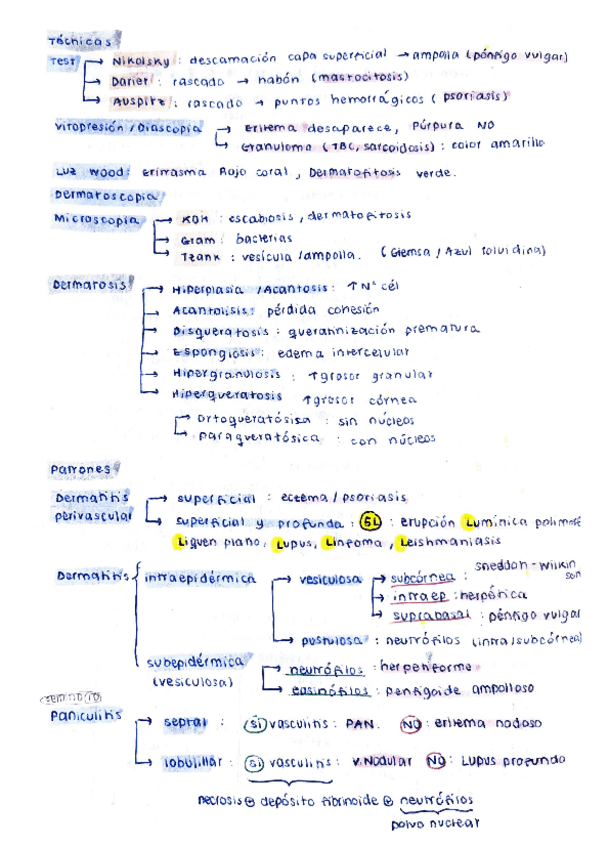 Técnicas
Test → Nikolsky: descamación capa superficial → ampolla (pénfigo vulgar)
→ Darier: rascado → habón (mastocitosis)
→ Auspitz: rascado → puntos hemorrágicos (psoriasis)
Vitropresión / Diascopia → Eritema desaparece, Púrpura NO
→ Granuloma (TBC, sarcoidosis): color amarillo
Luz Wood: eritrasma Rojo coral, Dermatofitosis verde.
Dermatoscopia
Microscopia → KOH: escabiosis, dermatofitosis
→ Gram: bacterias
→ Tzank: vesícula/ampolla. (Giemsa / Azul toluidina)
Dermatosis → Hiperplasia / Acantosis: ↑ Nº cél
→ Acantolisis: pérdida cohesión
→ Disqueratosis: queratinización prematura
→ Espongiosis: edema intercelular
→ Hipergranulosis: ↑grosor granular
→ Hiperqueratosis ↑grosor córnea
→ Ortoqueratósica: sin núcleos
→ paraqueratósica: con núcleos
Patrones
Dermatitis perivascular → superficial: eczema / psoriasis
→ superficial y profunda: 5L: erupción Lumínica polimorf
Liquen plano, Lupus, Linfoma, Leishmaniasis
Dermatitis { intraepidérmica → vesiculosa → subcórnea: Sneddon-Wilkinson
→ intraep: herpética
→ suprabasal: pénfigo vulgar
→ pustulosa: neutrófilos (intra/subcórnea)
subepidérmica (vesiculosa) → neutrófilos: herpetiforme
→ eosinófilos: penfigoide ampolloso
Paniculitis → septal: SI vasculitis: PAN. NO: eritema nodoso
→ lobulillar: SI vasculitis: V. Nodular NO: Lupus profundo
necrosis ⊕ depósito fibrinoide ⊕ neutrófilos
polvo nuclear